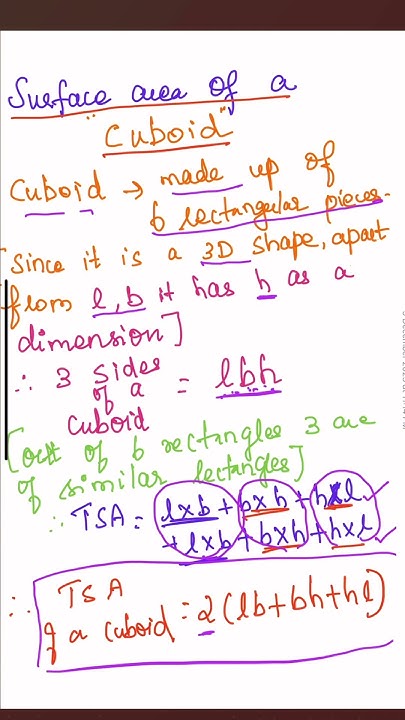 Surface area of a
"Cuboid"
Cuboid → made up of
6 rectangular pieces.
[Since it is a 3D shape, apart
from l, b it has h as a
dimension]
∴ 3 sides
of a = lbh
cuboid
[out of 6 rectangles 3 are
of similar rectangles]
∴ TSA = l×b + b×h + h×l
+ l×b + b×h + h×l
∴ TSA
of a cuboid = 2(lb+bh+hl)